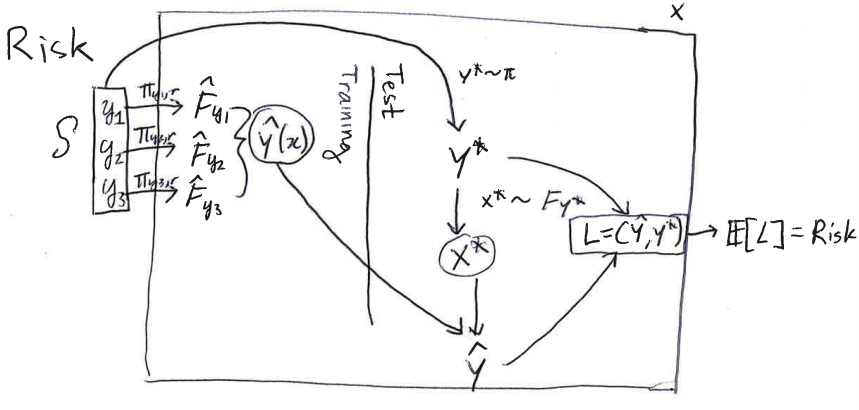 X
Risk
S
y₁ π_{y₁,r} F̂_{y₁}
y₂ π_{y₂,r} F̂_{y₂}
y₃ π_{y₃,r} F̂_{y₃}
ŷ(x)
Training
Test
y*~π
Y*
X*~F_{Y*}
X*
Ŷ
L=(Ŷ,Y*)
𝔼[L]=Risk